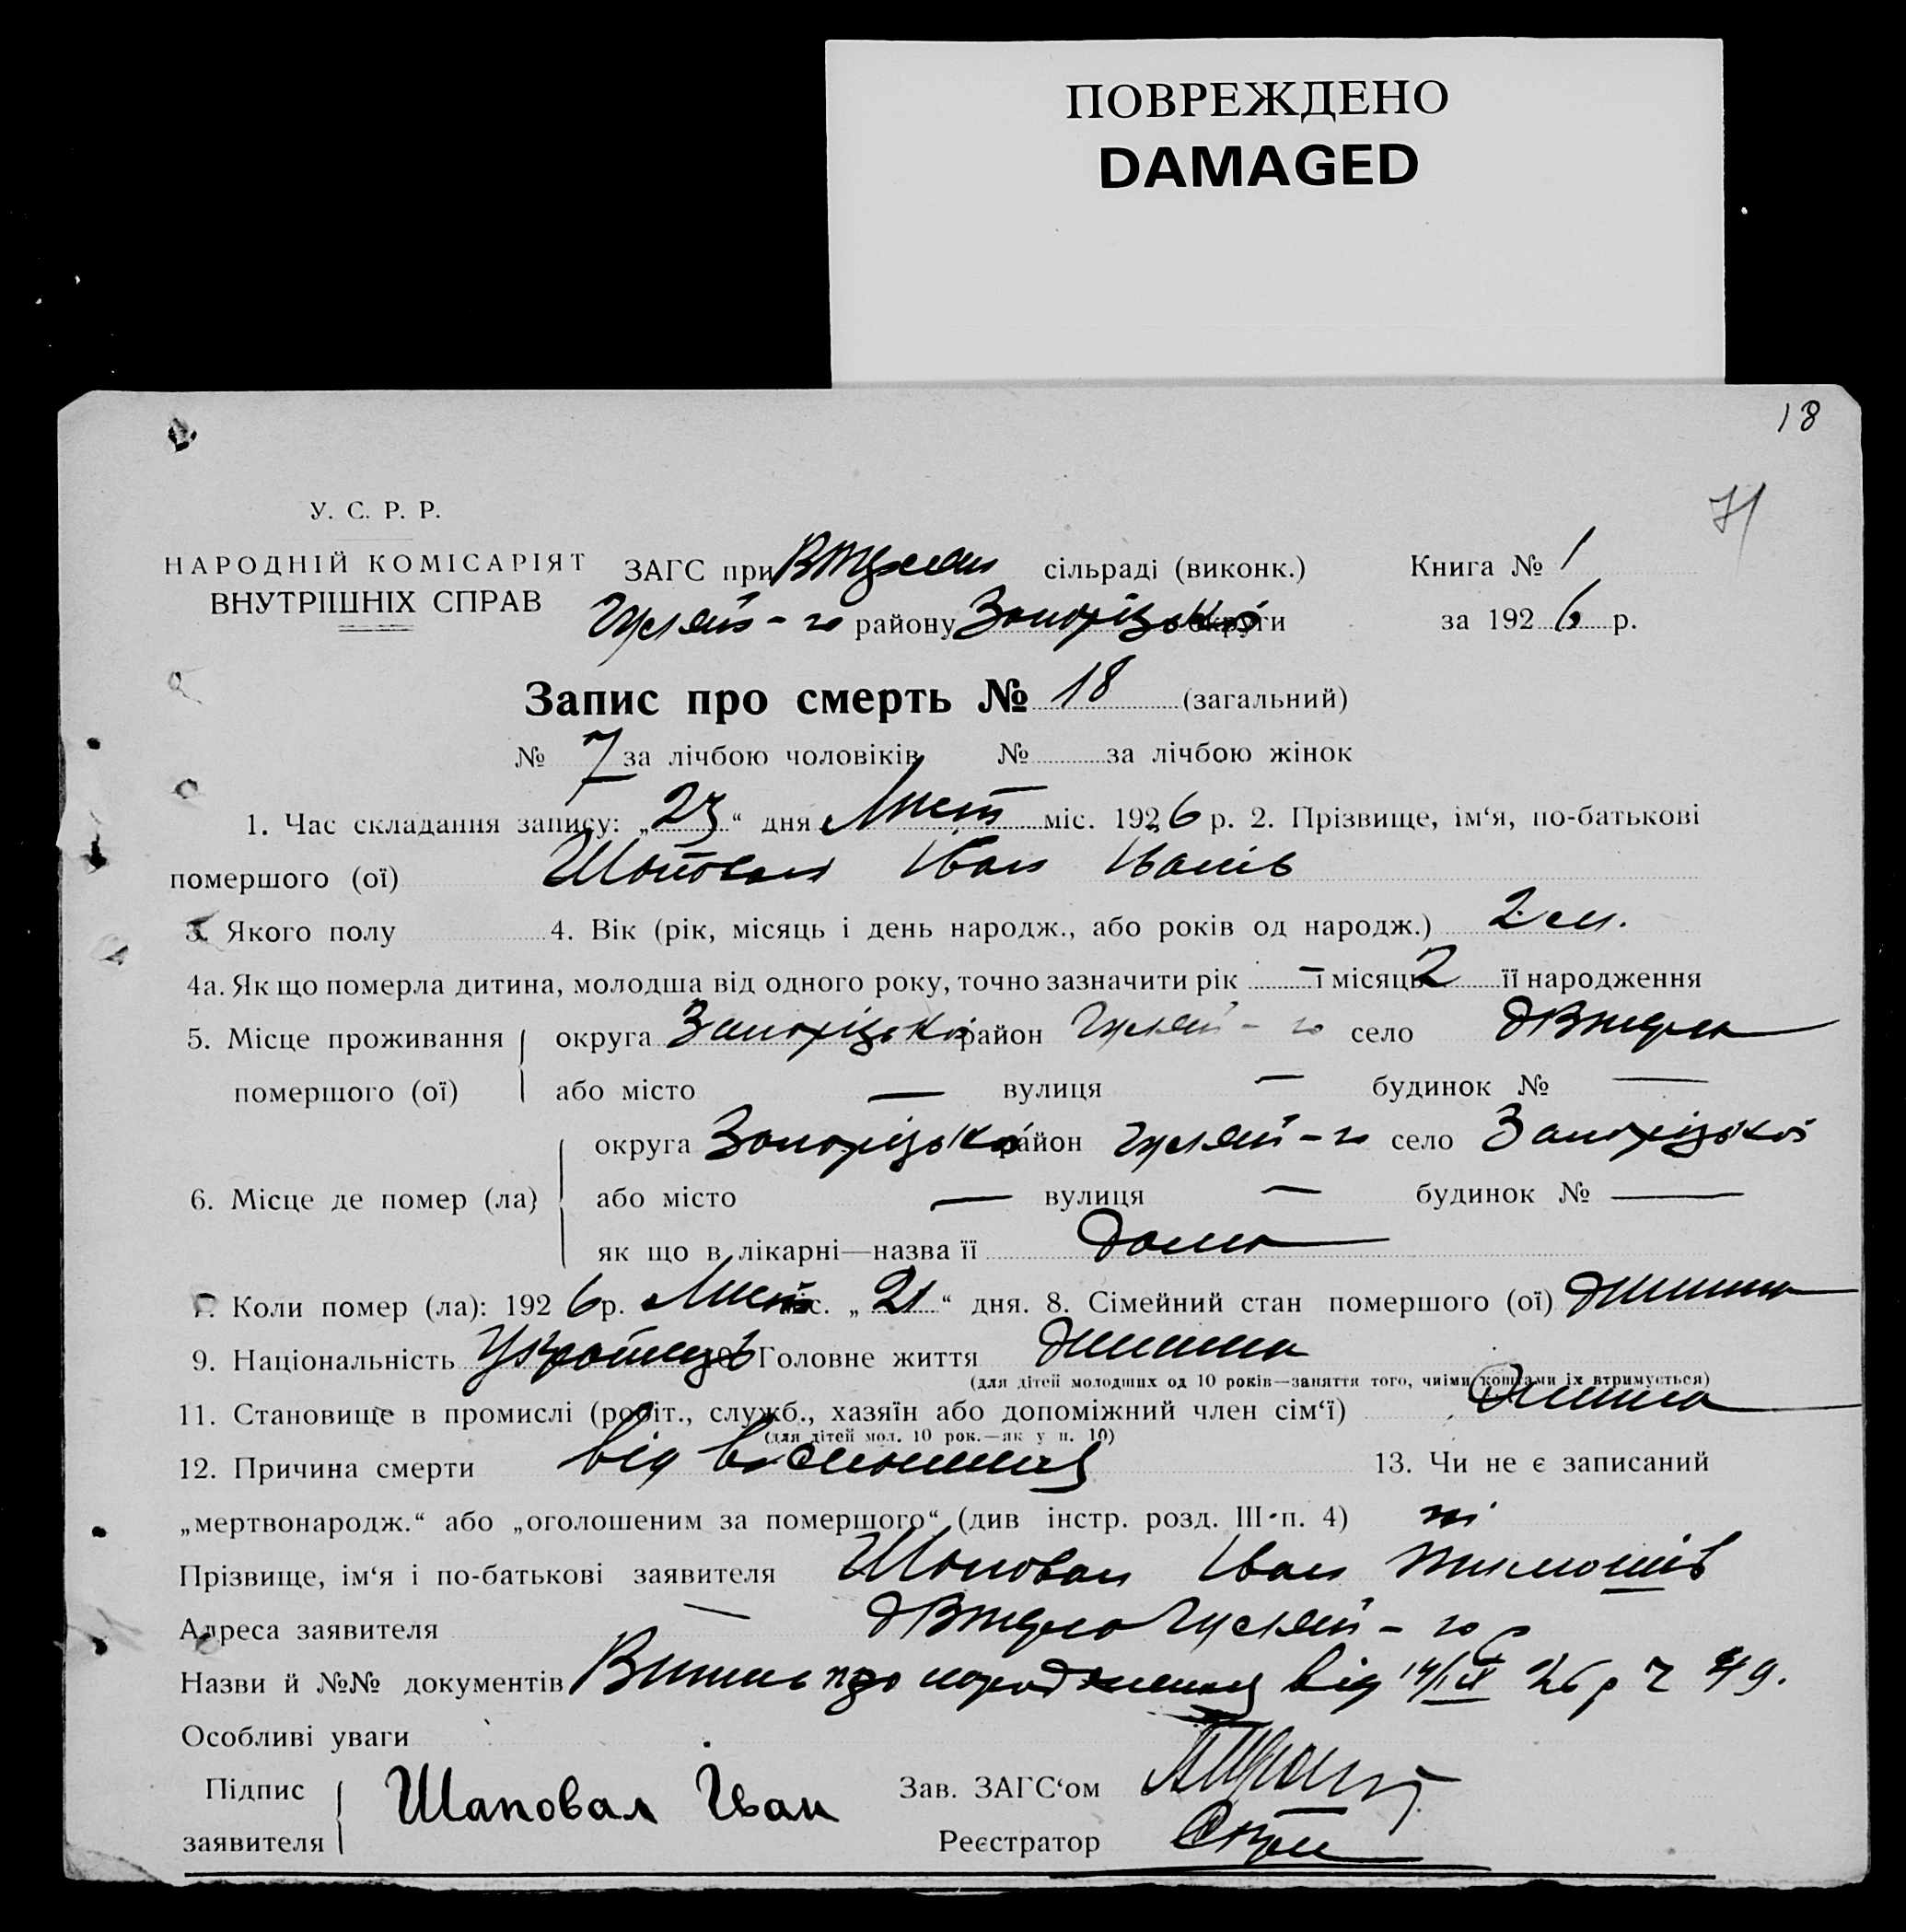 ПОВРЕЖДЕНО
DAMAGED
18
71
У. С. Р. Р.
НАРОДНІЙ КОМІСАРІЯТ
ВНУТРІШНІХ СПРАВ
ЗАГС при сільраді (виконк.) Книга № 1
Гуляй-го району Запорізької округи за 1926 р.
Запис про смерть № 18 (загальний)
№ 7 за лічбою чоловіків № за лічбою жінок
1. Час складання запису: „23“ дня Лист міс. 1926 р. 2. Прізвище, ім‘я, по-батькові
помершого (ої) Шаповал Іван Іванів
3. Якого полу 4. Вік (рік, місяць і день народж., або років од народж.) 2 м.
4а. Як що померла дитина, молодша від одного року, точно зазначити рік — і місяць 2 її народження
5. Місце проживання помершого (ої) округа Запорізької район Гуляй-го село
або місто — вулиця — будинок № —
6. Місце де помер (ла) округа Запорізької район Гуляй-го село Запорізької
або місто — вулиця — будинок № —
як що в лікарні—назва її дома
7. Коли помер (ла): 1926 р. Лист міс. „21“ дня. 8. Сімейний стан помершого (ої) дитина
9. Національність Українець 10. Головне життя дитина
(для дітей молодших од 10 років—заняття того, чиїми коштами їх втримується)
11. Становище в промислі (робіт., служб., хазяїн або допоміжний член сім‘ї) дитина
(для дітей мол. 10 рок.—як у п. 10)
12. Причина смерти від 13. Чи не є записаний
„мертвонародж.“ або „оголошеним за помершого“ (див інстр. розд. III п. 4) ні
Прізвище, ім‘я і по-батькові заявителя Шаповал Іван Тимошів
Адреса заявителя Гуляй-го р
Назви й №№ документів про народження від 14/IX 26 р Ч 49.
Особливі уваги
Підпис заявителя Шаповал Іван Зав. ЗАГС‘ом
Реєстратор